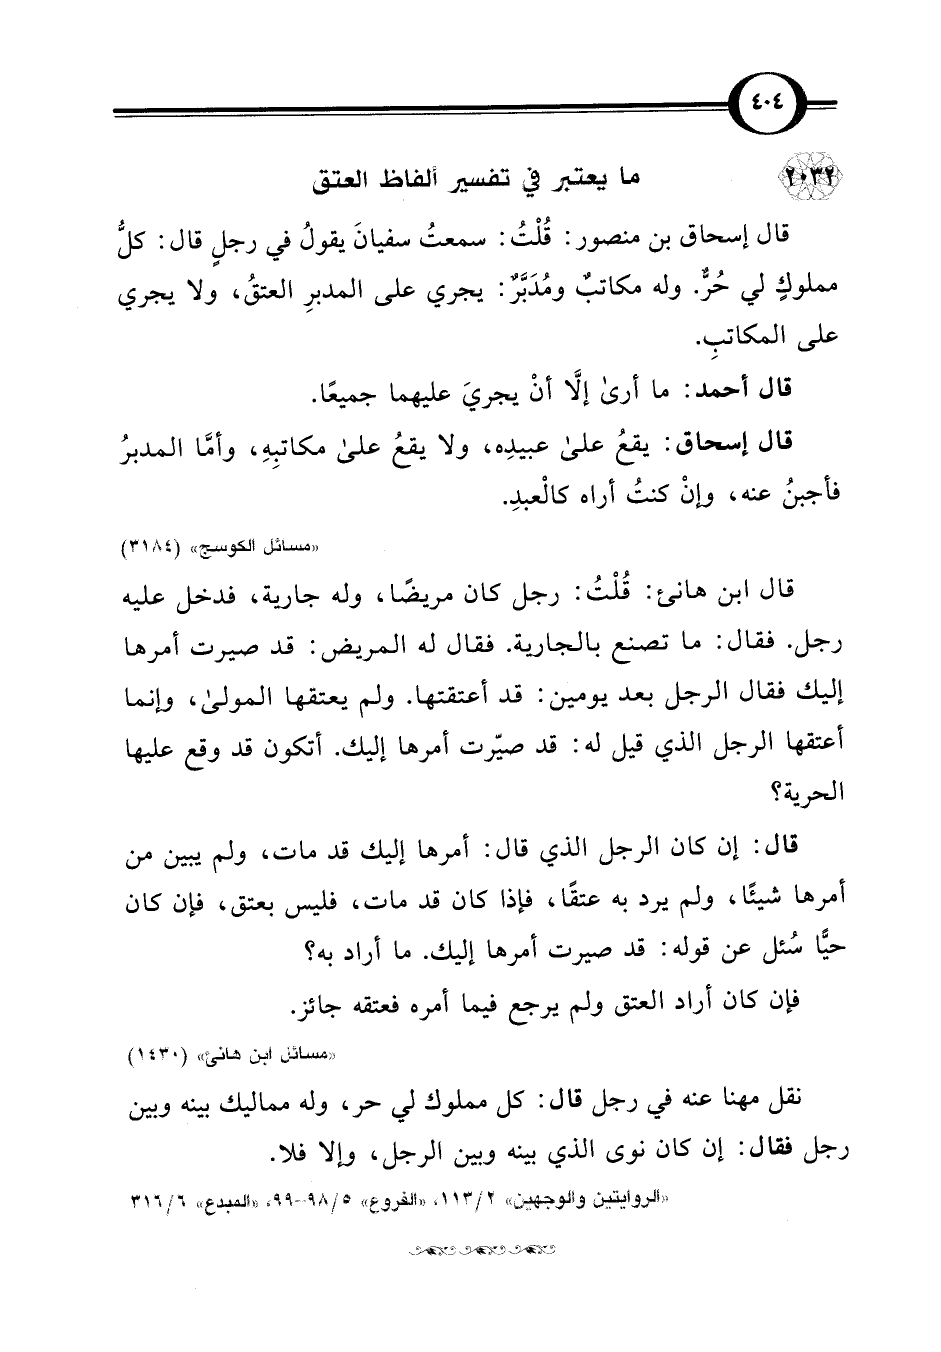 ٤٠٤
٢٠٣٢ ما يعتبر في تفسير ألفاظ العتق
قال إسحاق بن منصور: قُلْتُ: سمعتُ سفيانَ يقولُ في رجلٍ قال: كلُّ
مملوكٍ لي حُرٌّ. وله مكاتبٌ ومُدَبَّرٌ: يجري على المدبرِ العتقُ، ولا يجري
على المكاتبِ.
قال أحمد: ما أرىٰ إلَّا أنْ يجريَ عليهما جميعًا.
قال إسحاق: يقعُ علىٰ عبيدِه، ولا يقعُ علىٰ مكاتبِهِ، وأمَّا المدبرُ
فأجبنُ عنه، وإنْ كنتُ أراه كالْعبدِ.
«مسائل الكوسج» (٣١٨٤)
قال ابن هانئ: قُلْتُ: رجل كان مريضًا، وله جارية، فدخل عليه
رجل. فقال: ما تصنع بالجارية. فقال له المريض: قد صيرت أمرها
إليك فقال الرجل بعد يومين: قد أعتقتها. ولم يعتقها المولىٰ، وإنما
أعتقها الرجل الذي قيل له: قد صيّرت أمرها إليك. أتكون قد وقع عليها
الحرية؟
قال: إن كان الرجل الذي قال: أمرها إليك قد مات، ولم يبين من
أمرها شيئًا، ولم يرد به عتقًا، فإذا كان قد مات، فليس بعتق، فإن كان
حيًّا سُئل عن قوله: قد صيرت أمرها إليك. ما أراد به؟
فإن كان أراد العتق ولم يرجع فيما أمره فعتقه جائز.
«مسائل ابن هانئ» (١٤٣٠)
نقل مهنا عنه في رجل قال: كل مملوك لي حر، وله مماليك بينه وبين
رجل فقال: إن كان نوى الذي بينه وبين الرجل، وإلا فلا.
«الروايتين والوجهين» ١١٣/٢، «الفروع» ٩٨/٥-٩٩، «المبدع» ٣١٦/٦